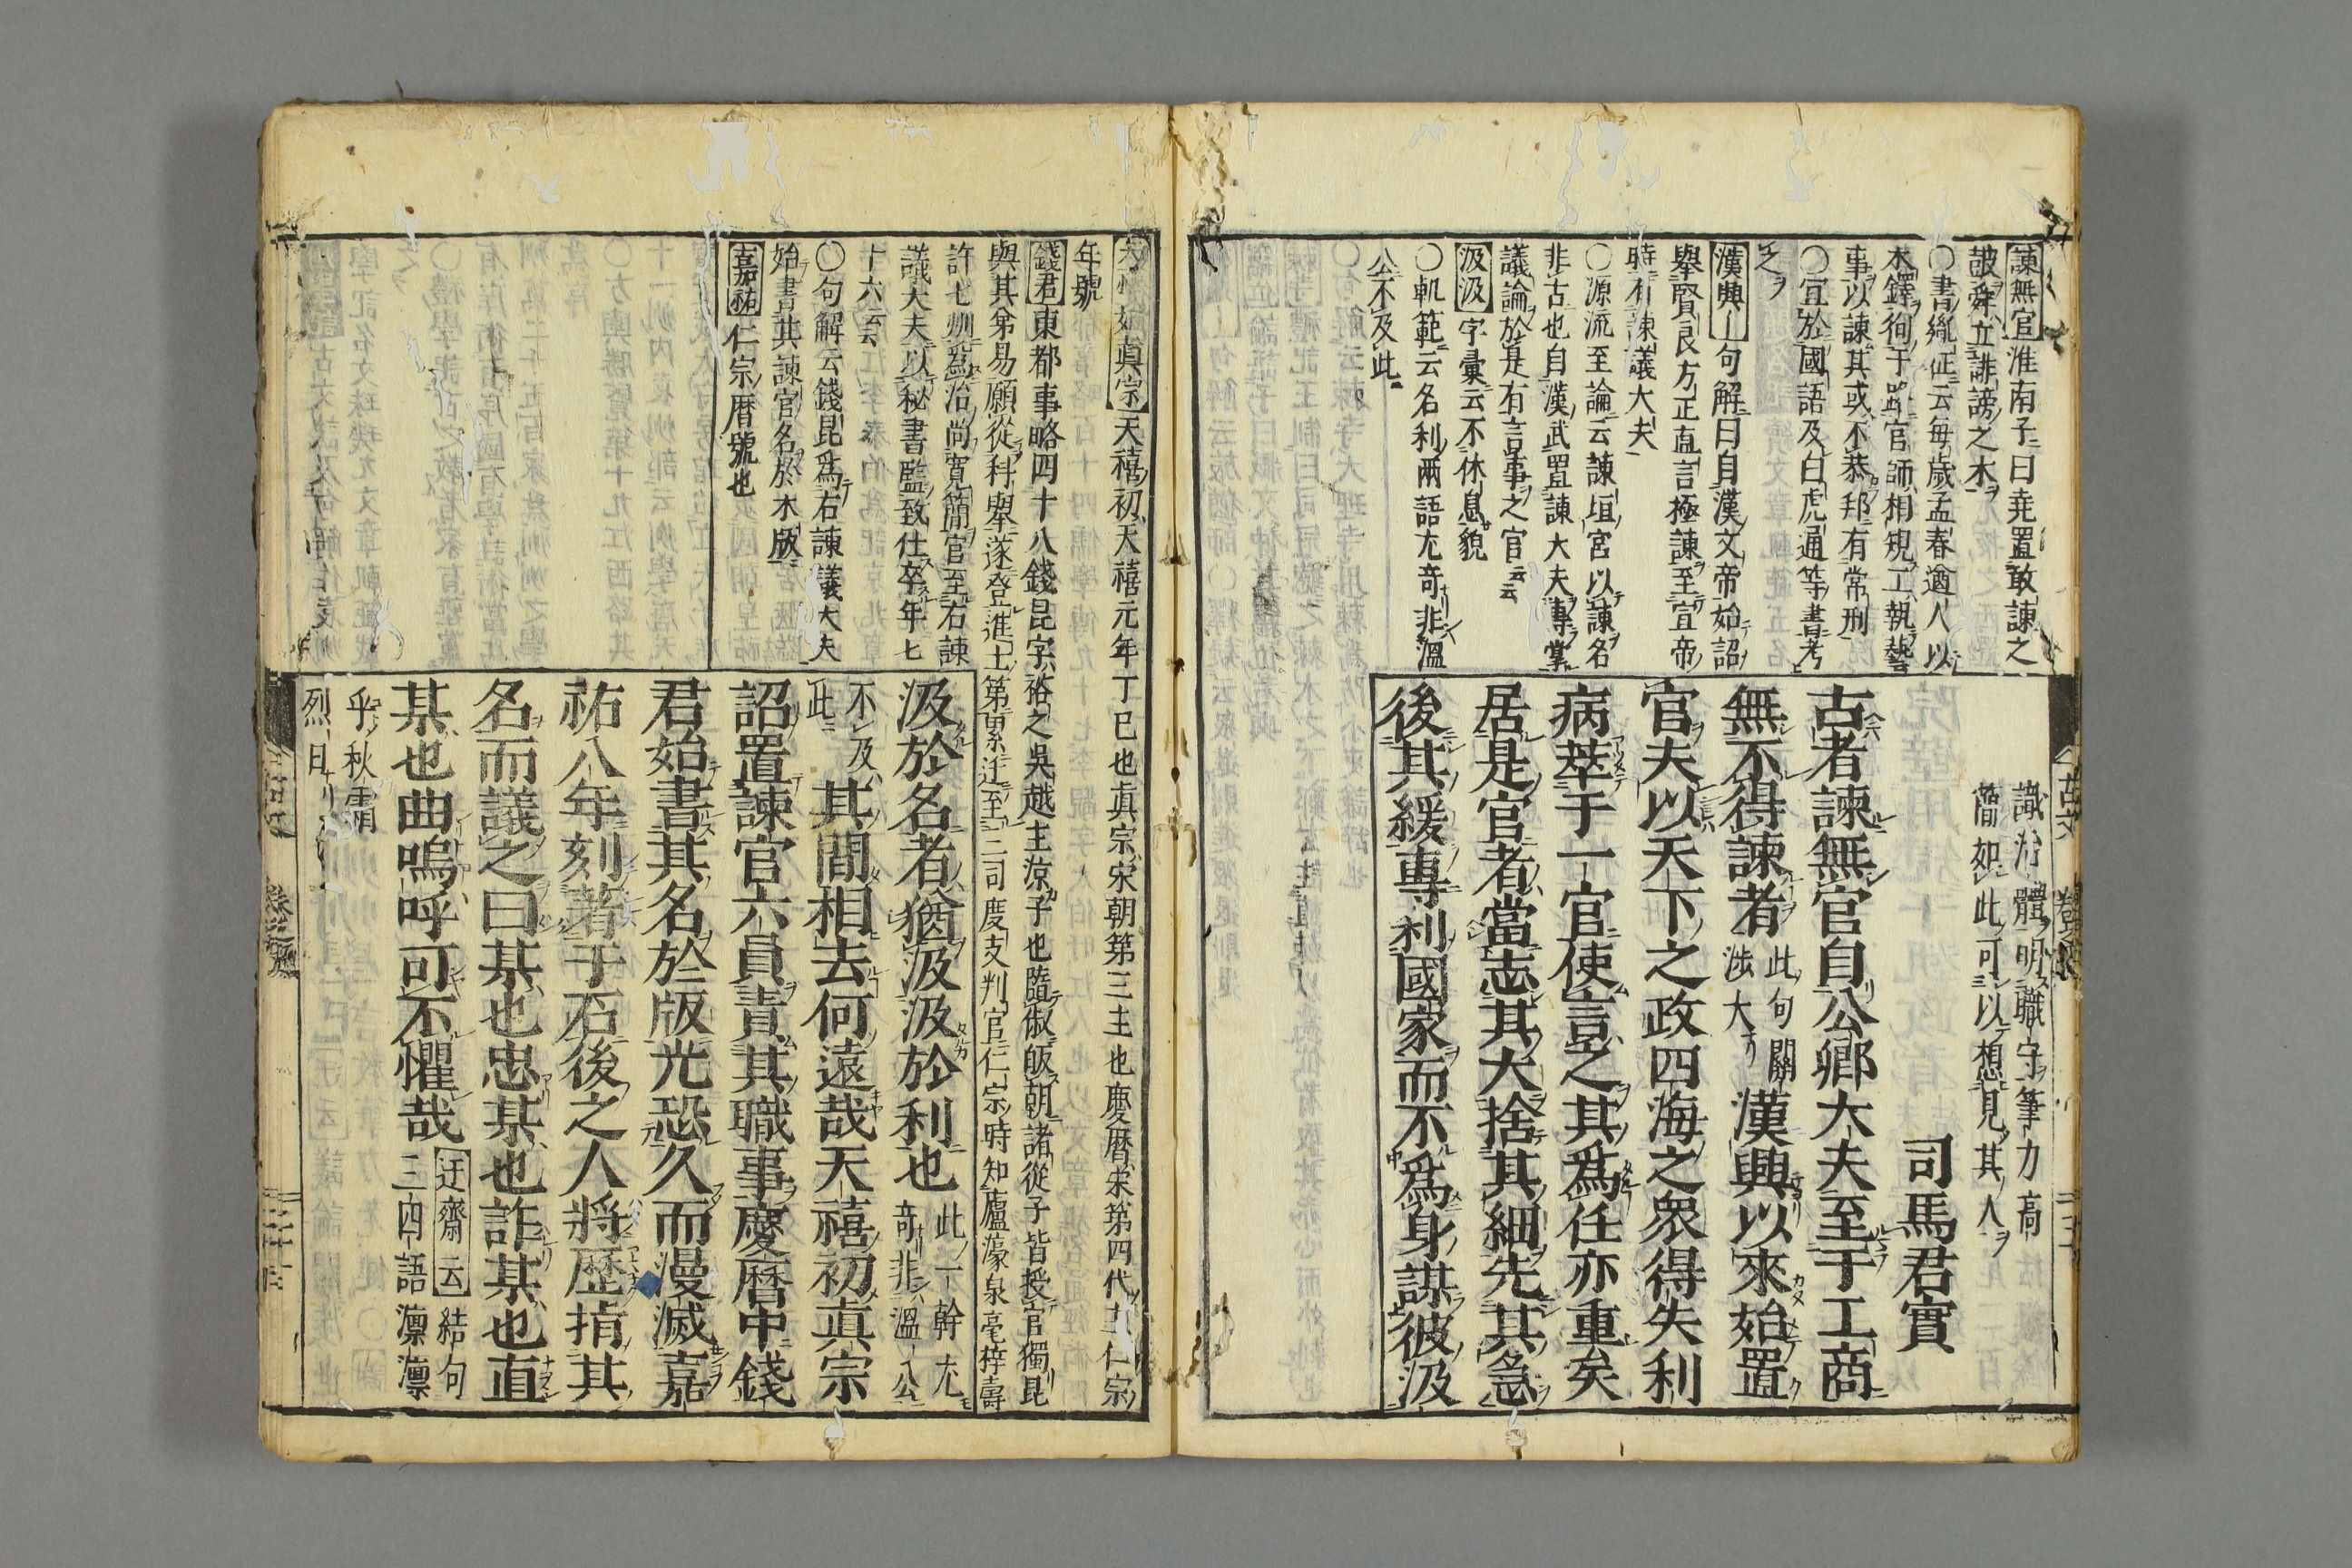 諫無官淮南子曰堯置敢諫之
皷舜立誹謗之木
〇書胤征云毎歳孟春遒人以
木鐸徇于路官師相規工執藝
事以諫其或不恭邦有常刑
〇宜於國語及白虎通等書考
之
漢興句解曰自漢文帝始詔
舉賢良方正直言極諫至宣帝
時有諫議大夫
〇源流至論云諫垣宮以諫名
非古也自漢武置諫大夫專掌
議論於是有言事之官云云
汲汲字彙云不休息貌
〇軌範云名利兩語尤奇非溫
公不及此
識治體明職守筆力高
簡如此可以想見其人
司馬君實
古者諫無官自公卿大夫至于工商
無不得諫者此句關涉大漢興以來始置
官夫以天下之政四海之衆得失利
病萃于一官使言之其爲任亦重矣
居是官者當志其大捨其細先其急
後其緩專利國家而不爲身謀彼汲
天禧初真宗天禧初天禧元年丁巳也真宗宋朝第三主也慶曆宋第四代主仁宗
年號
錢君東都事略四十八錢昆字裕之吳越王倧子也隨俶皈朝諸從子皆授官獨昆
與其弟易願從科舉遂登進士第累迁至三司度支判官仁宗時知廬濠泉亳梓壽
許七州爲治尚寛簡官至右諫
議大夫以秘書監致仕卒年七
十六云云
〇句解云錢昆爲右諫議大夫
始書其諫官名於木版
嘉祐仁宗曆號也
汲於名者猶汲汲於利也此一幹尤奇非溫公
不及此其間相去何遠哉天禧初真宗
詔置諫官六員責其職事慶曆中錢
君始書其名於版光恐久而漫滅嘉
祐八年刻著于石後之人將歷指其
名而議之曰某也忠某也詐某也直
某也曲嗚呼可不懼哉迂齋云結句三四語凛凛
乎秋霜
烈日